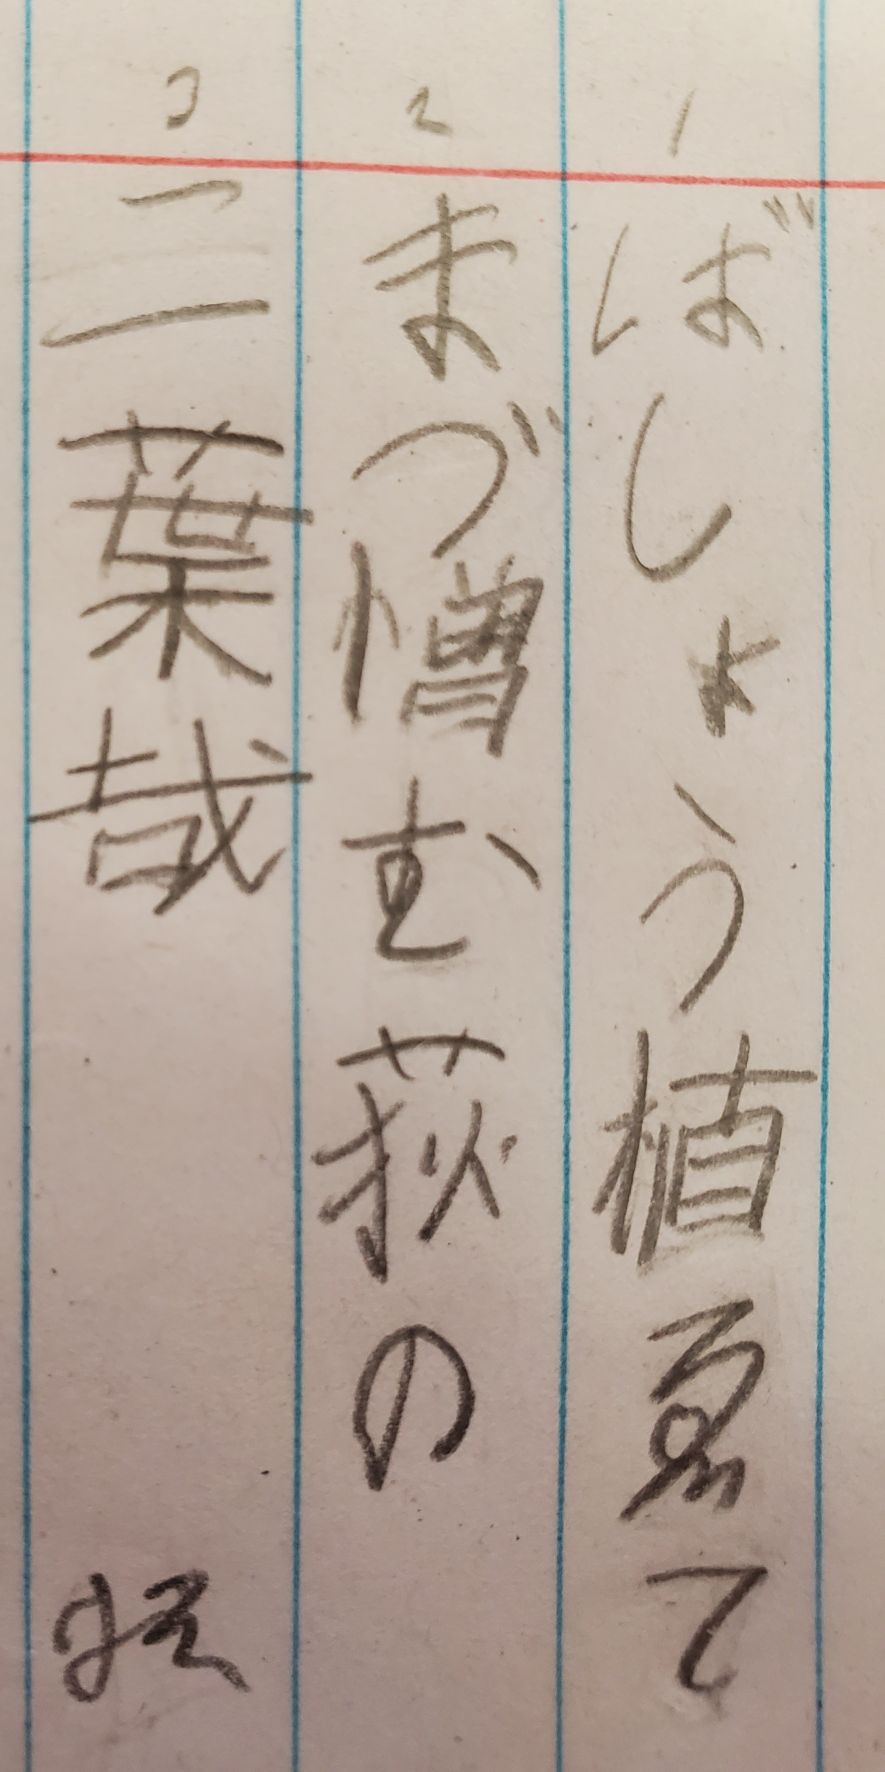 1
ばしょう植ゑて
2
まづ憎む荻の
3
二葉哉